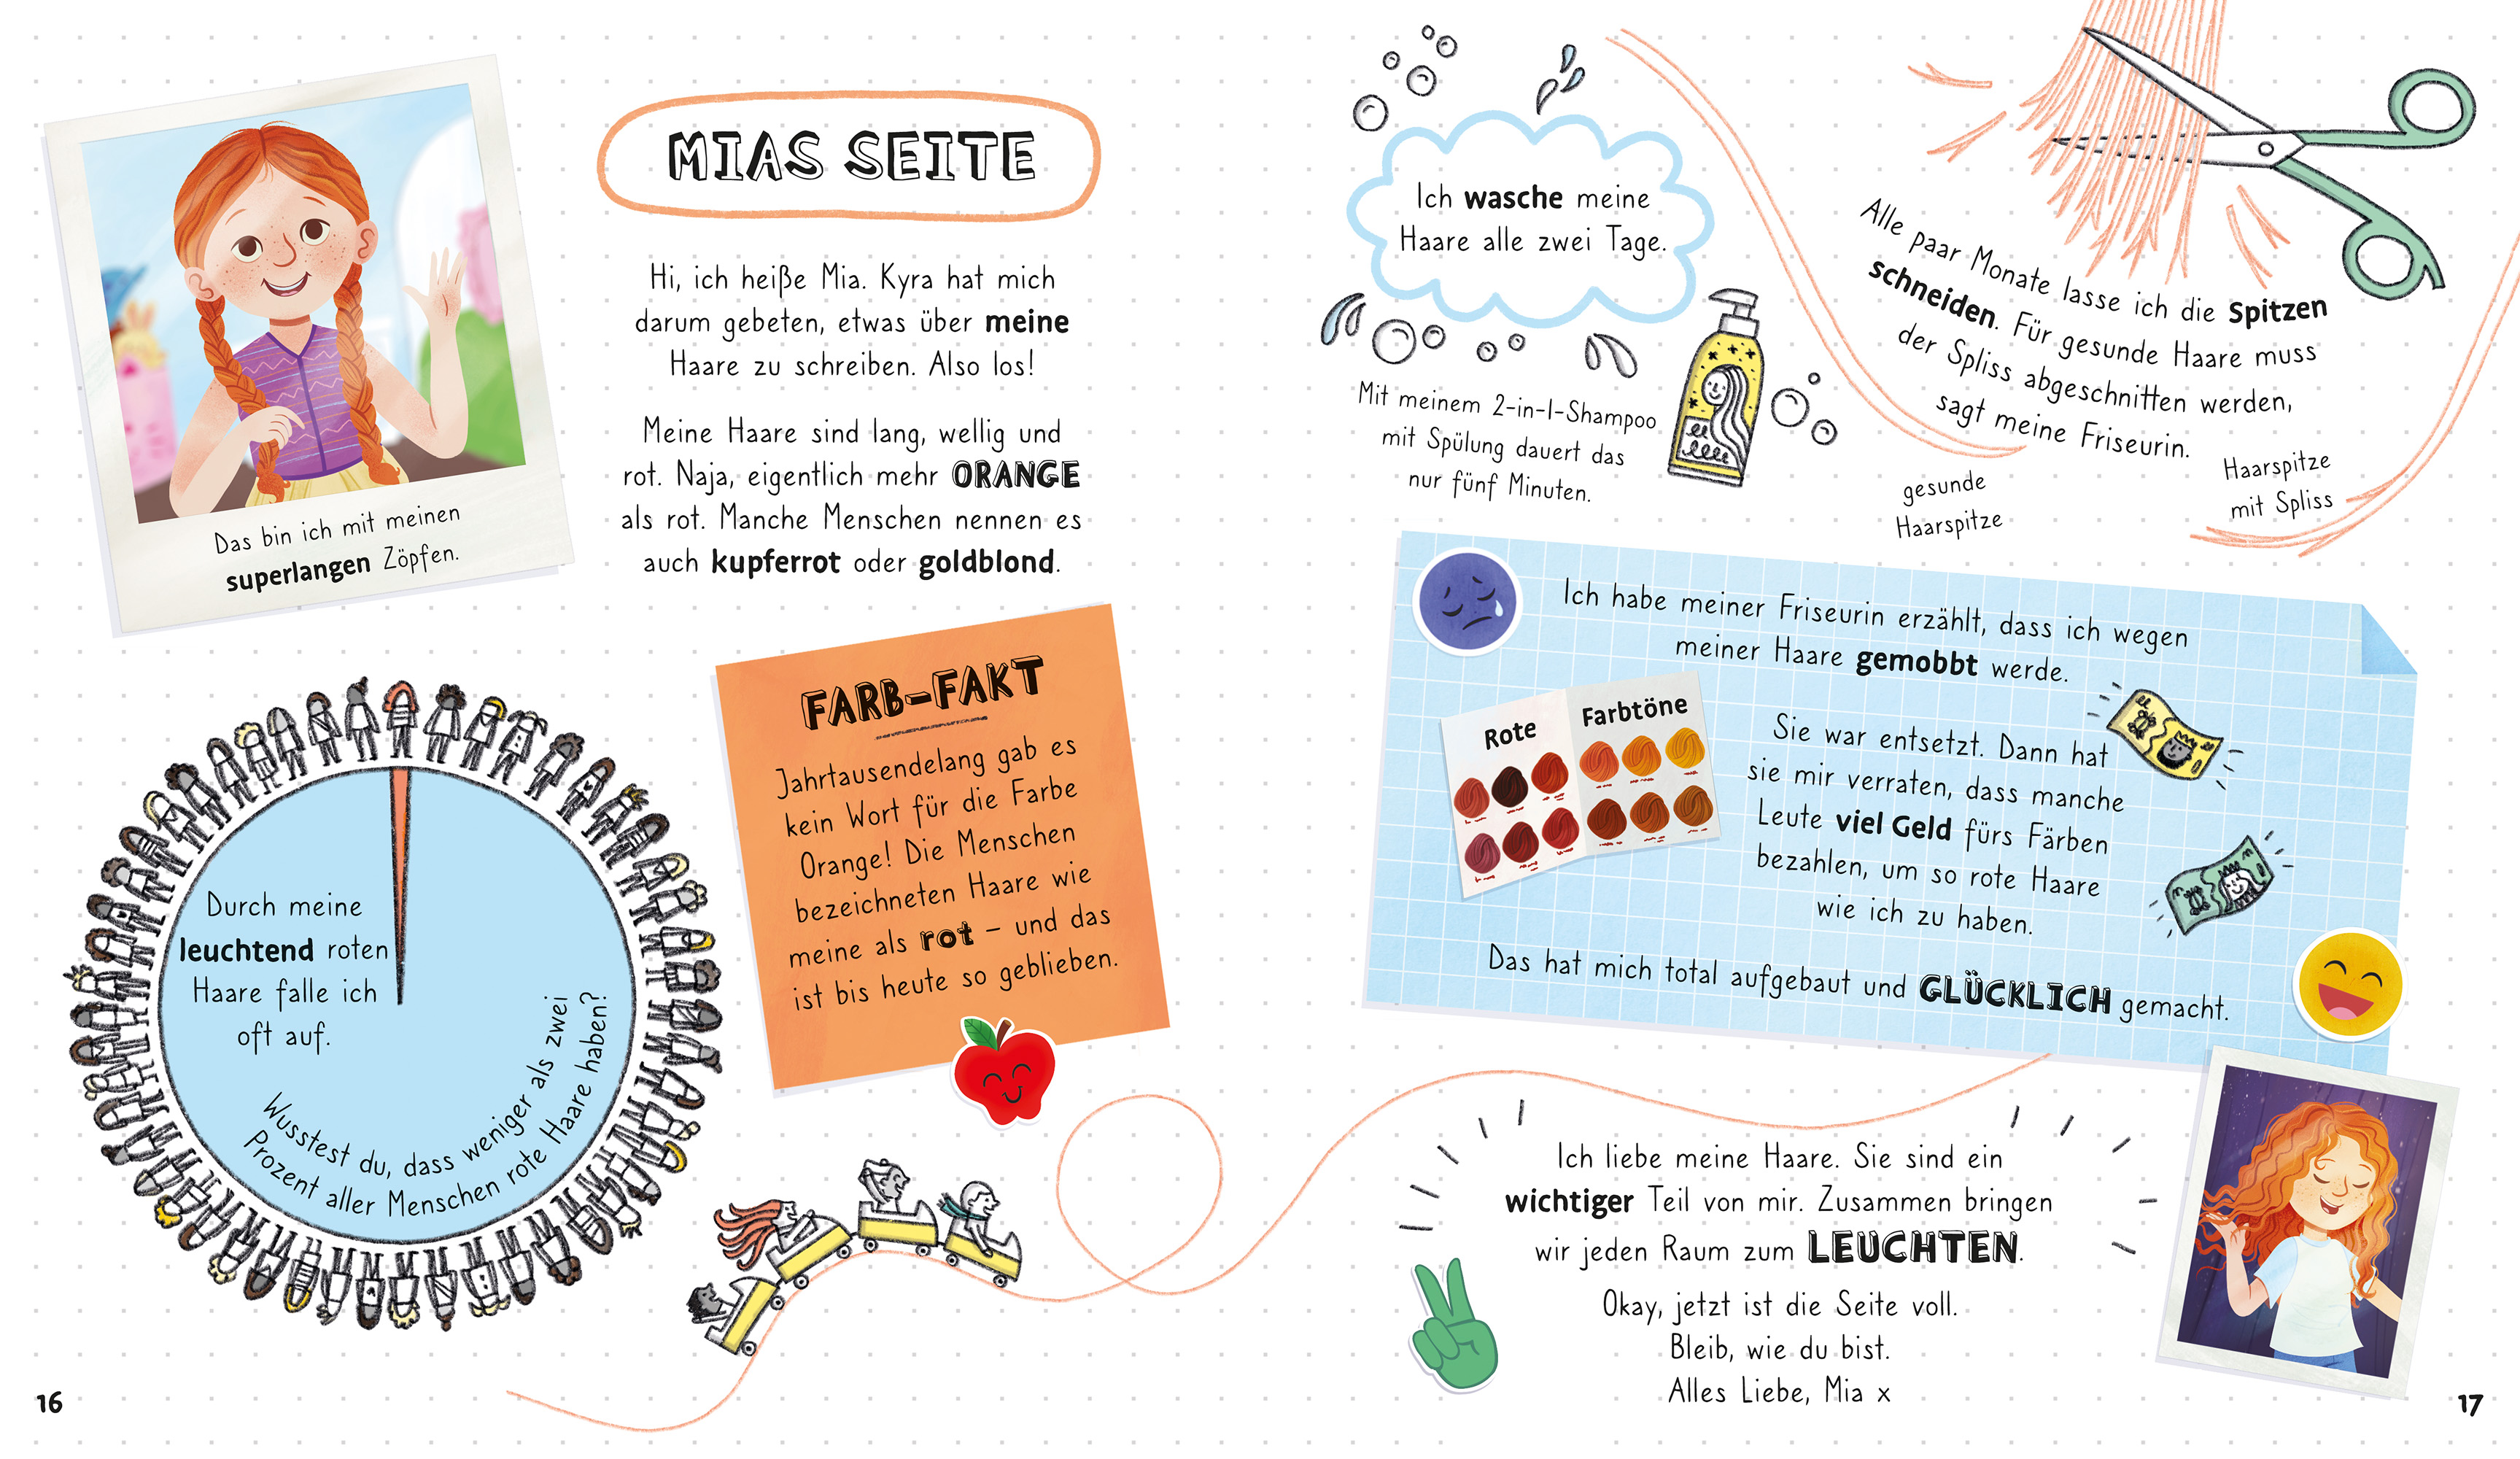 MIAS SEITE
Das bin ich mit meinen
superlangen Zöpfen.
Hi, ich heiße Mia. Kyra hat mich
darum gebeten, etwas über meine
Haare zu schreiben. Also los!
Meine Haare sind lang, wellig und
rot. Naja, eigentlich mehr ORANGE
als rot. Manche Menschen nennen es
auch kupferrot oder goldblond.
Durch meine
leuchtend roten
Haare falle ich
oft auf.
Wusstest du, dass weniger als zwei
Prozent aller Menschen rote Haare haben?
FARB-FAKT
Jahrtausendelang gab es
kein Wort für die Farbe
Orange! Die Menschen
bezeichneten Haare wie
meine als rot – und das
ist bis heute so geblieben.
16
Ich wasche meine
Haare alle zwei Tage.
Mit meinem 2-in-1-Shampoo
mit Spülung dauert das
nur fünf Minuten.
Alle paar Monate lasse ich die Spitzen
schneiden. Für gesunde Haare muss
der Spliss abgeschnitten werden,
sagt meine Friseurin.
gesunde
Haarspitze
Haarspitze
mit Spliss
Ich habe meiner Friseurin erzählt, dass ich wegen
meiner Haare gemobbt werde.
Rote Farbtöne
Sie war entsetzt. Dann hat
sie mir verraten, dass manche
Leute viel Geld fürs Färben
bezahlen, um so rote Haare
wie ich zu haben.
Das hat mich total aufgebaut und GLÜCKLICH gemacht.
Ich liebe meine Haare. Sie sind ein
wichtiger Teil von mir. Zusammen bringen
wir jeden Raum zum LEUCHTEN.
Okay, jetzt ist die Seite voll.
Bleib, wie du bist.
Alles Liebe, Mia x
17